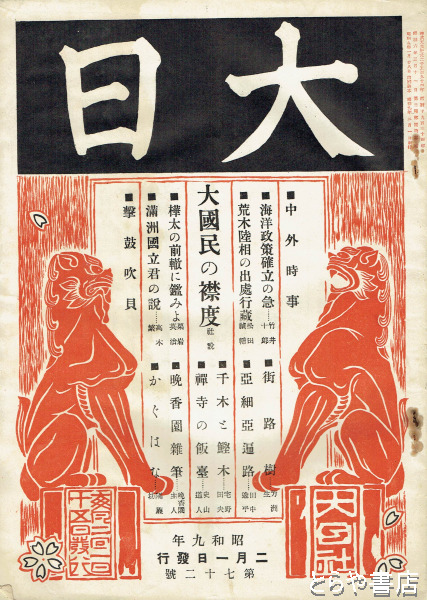 大日
■中外時事
■海洋政策確立の急 竹井十郎
■荒木陸相の出處行藏
大國民の襟度 社說
■樺太の前轍に鑑みよ
■滿洲國立君の說 高木
■擊鼓吹貝
■街路樹
■亞細亞遍路 田中逸平
■千木と鰹木 宅野田夫
■禪寺の飯臺 史山道人
■晚香園雜筆
■かぐはな
大日社
每月一日十五日發行
昭和九年
二月一日發行
第七十二號
とらや書店